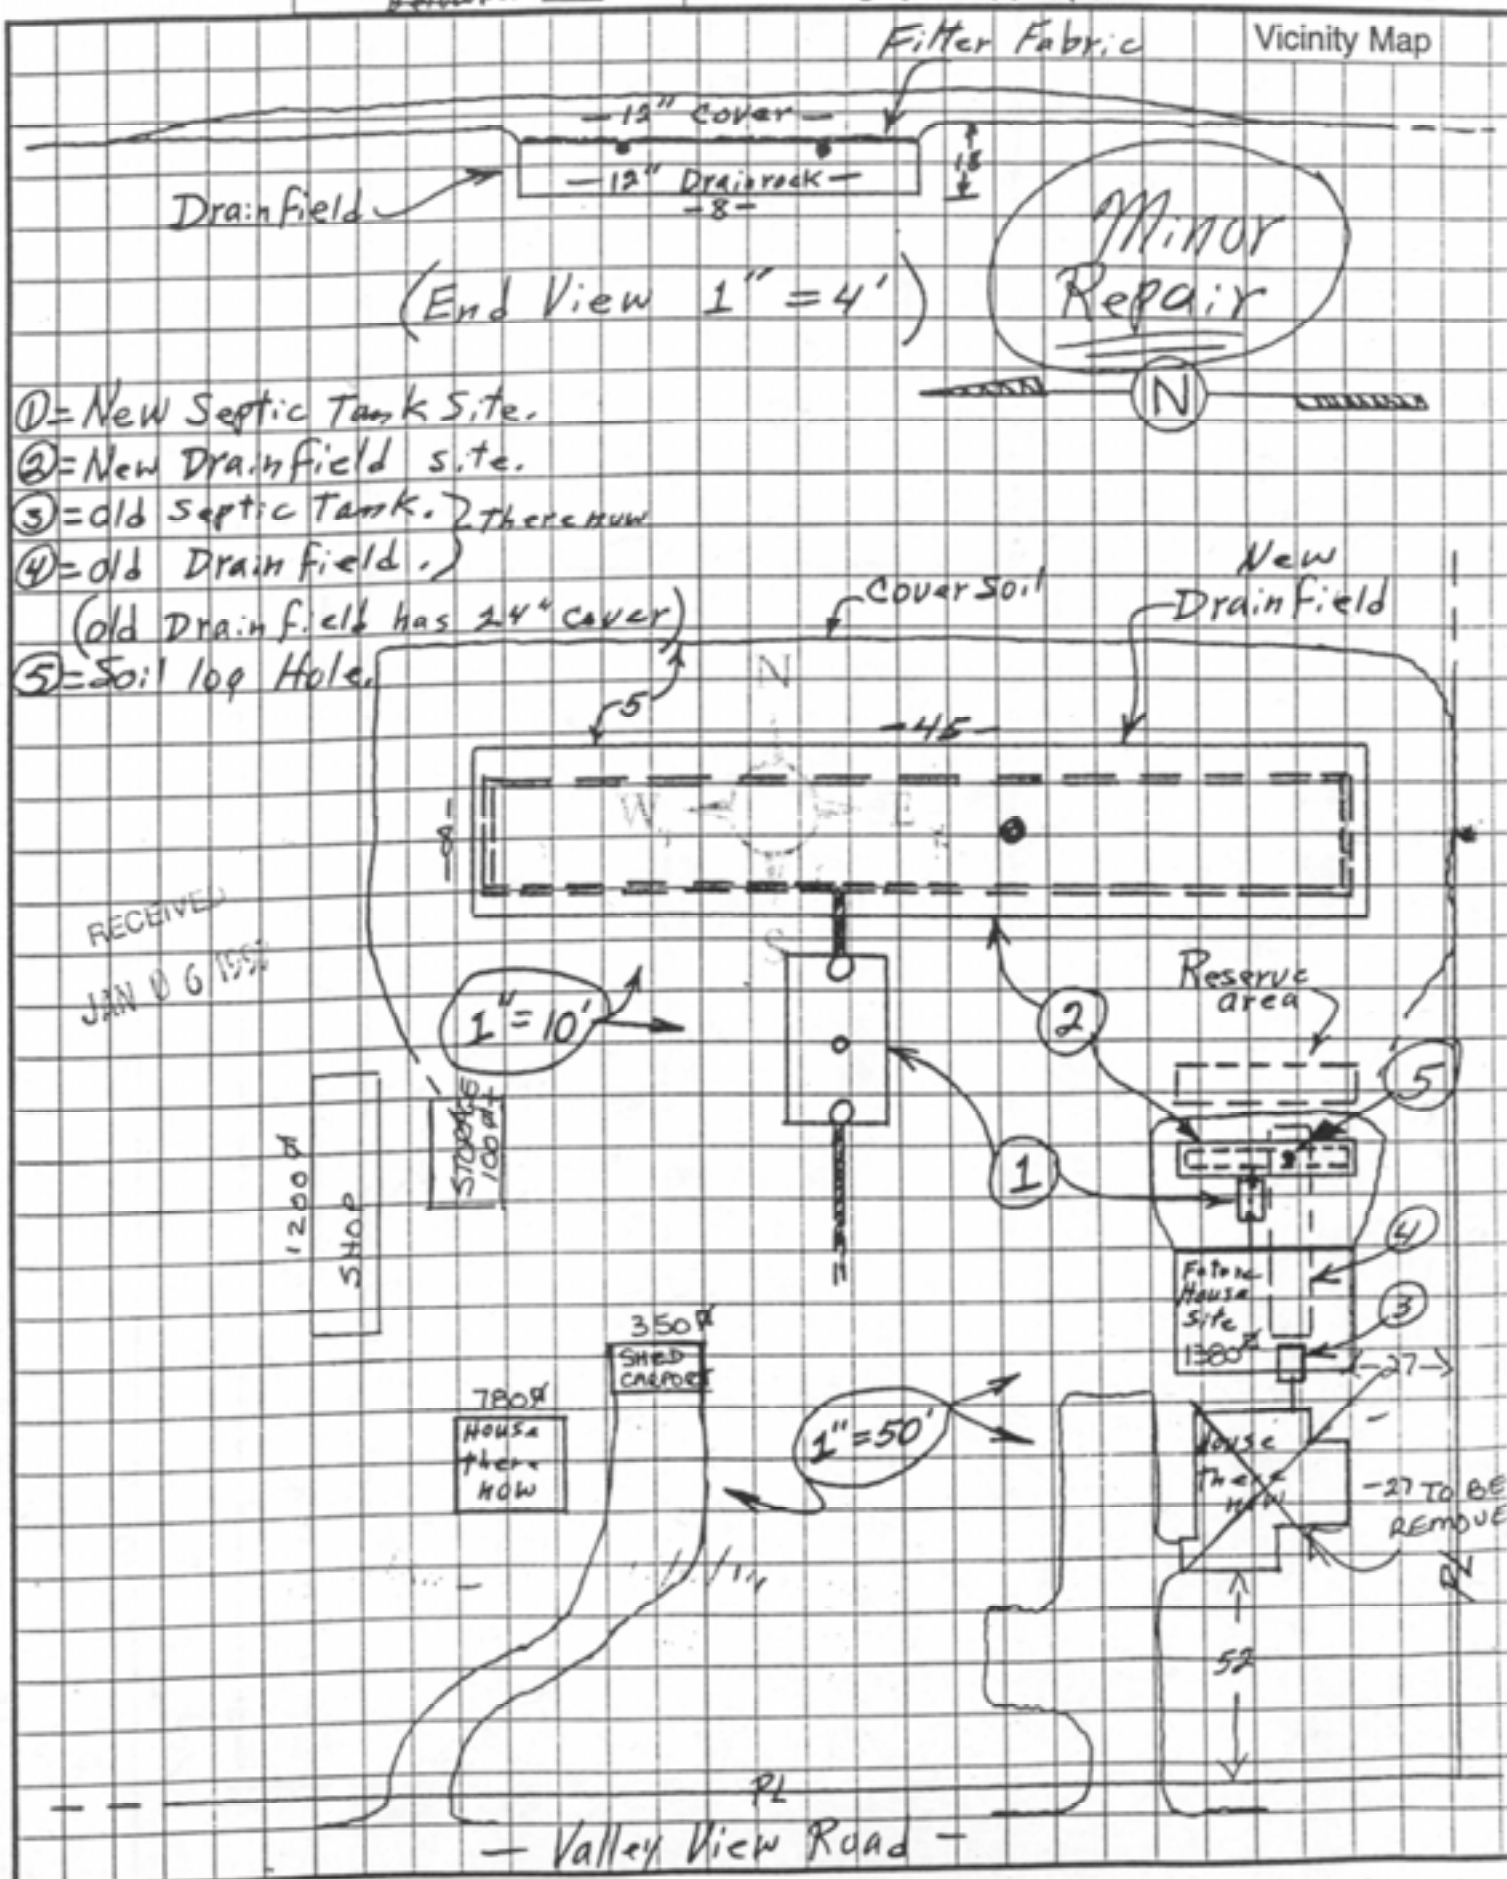 Filter Fabric
Vicinity Map
-12" Cover-
-12" Drainrock-
-8-
18
Drainfield
(End View 1" = 4')
Minor
Repair
N
①= New Septic Tank Site.
②= New Drainfield site.
③= old Septic Tank. } There now
④= old Drainfield. }
(old Drainfield has 24" Cover)
⑤= Soil log Hole.
Cover Soil
New
Drainfield
N
5
-45-
-8-
W
E
S
RECEIVED
JAN 06
1" = 10'
②
Reserve
area
⑤
STORAGE
100
1200
SHOP
①
④
③
House
Site
1380
-27-
350
SHED
CARPORT
780
House
there
now
1" = 50'
House
there
now
-27 TO BE
REMOVE
PL
52
PL
- Valley View Road -